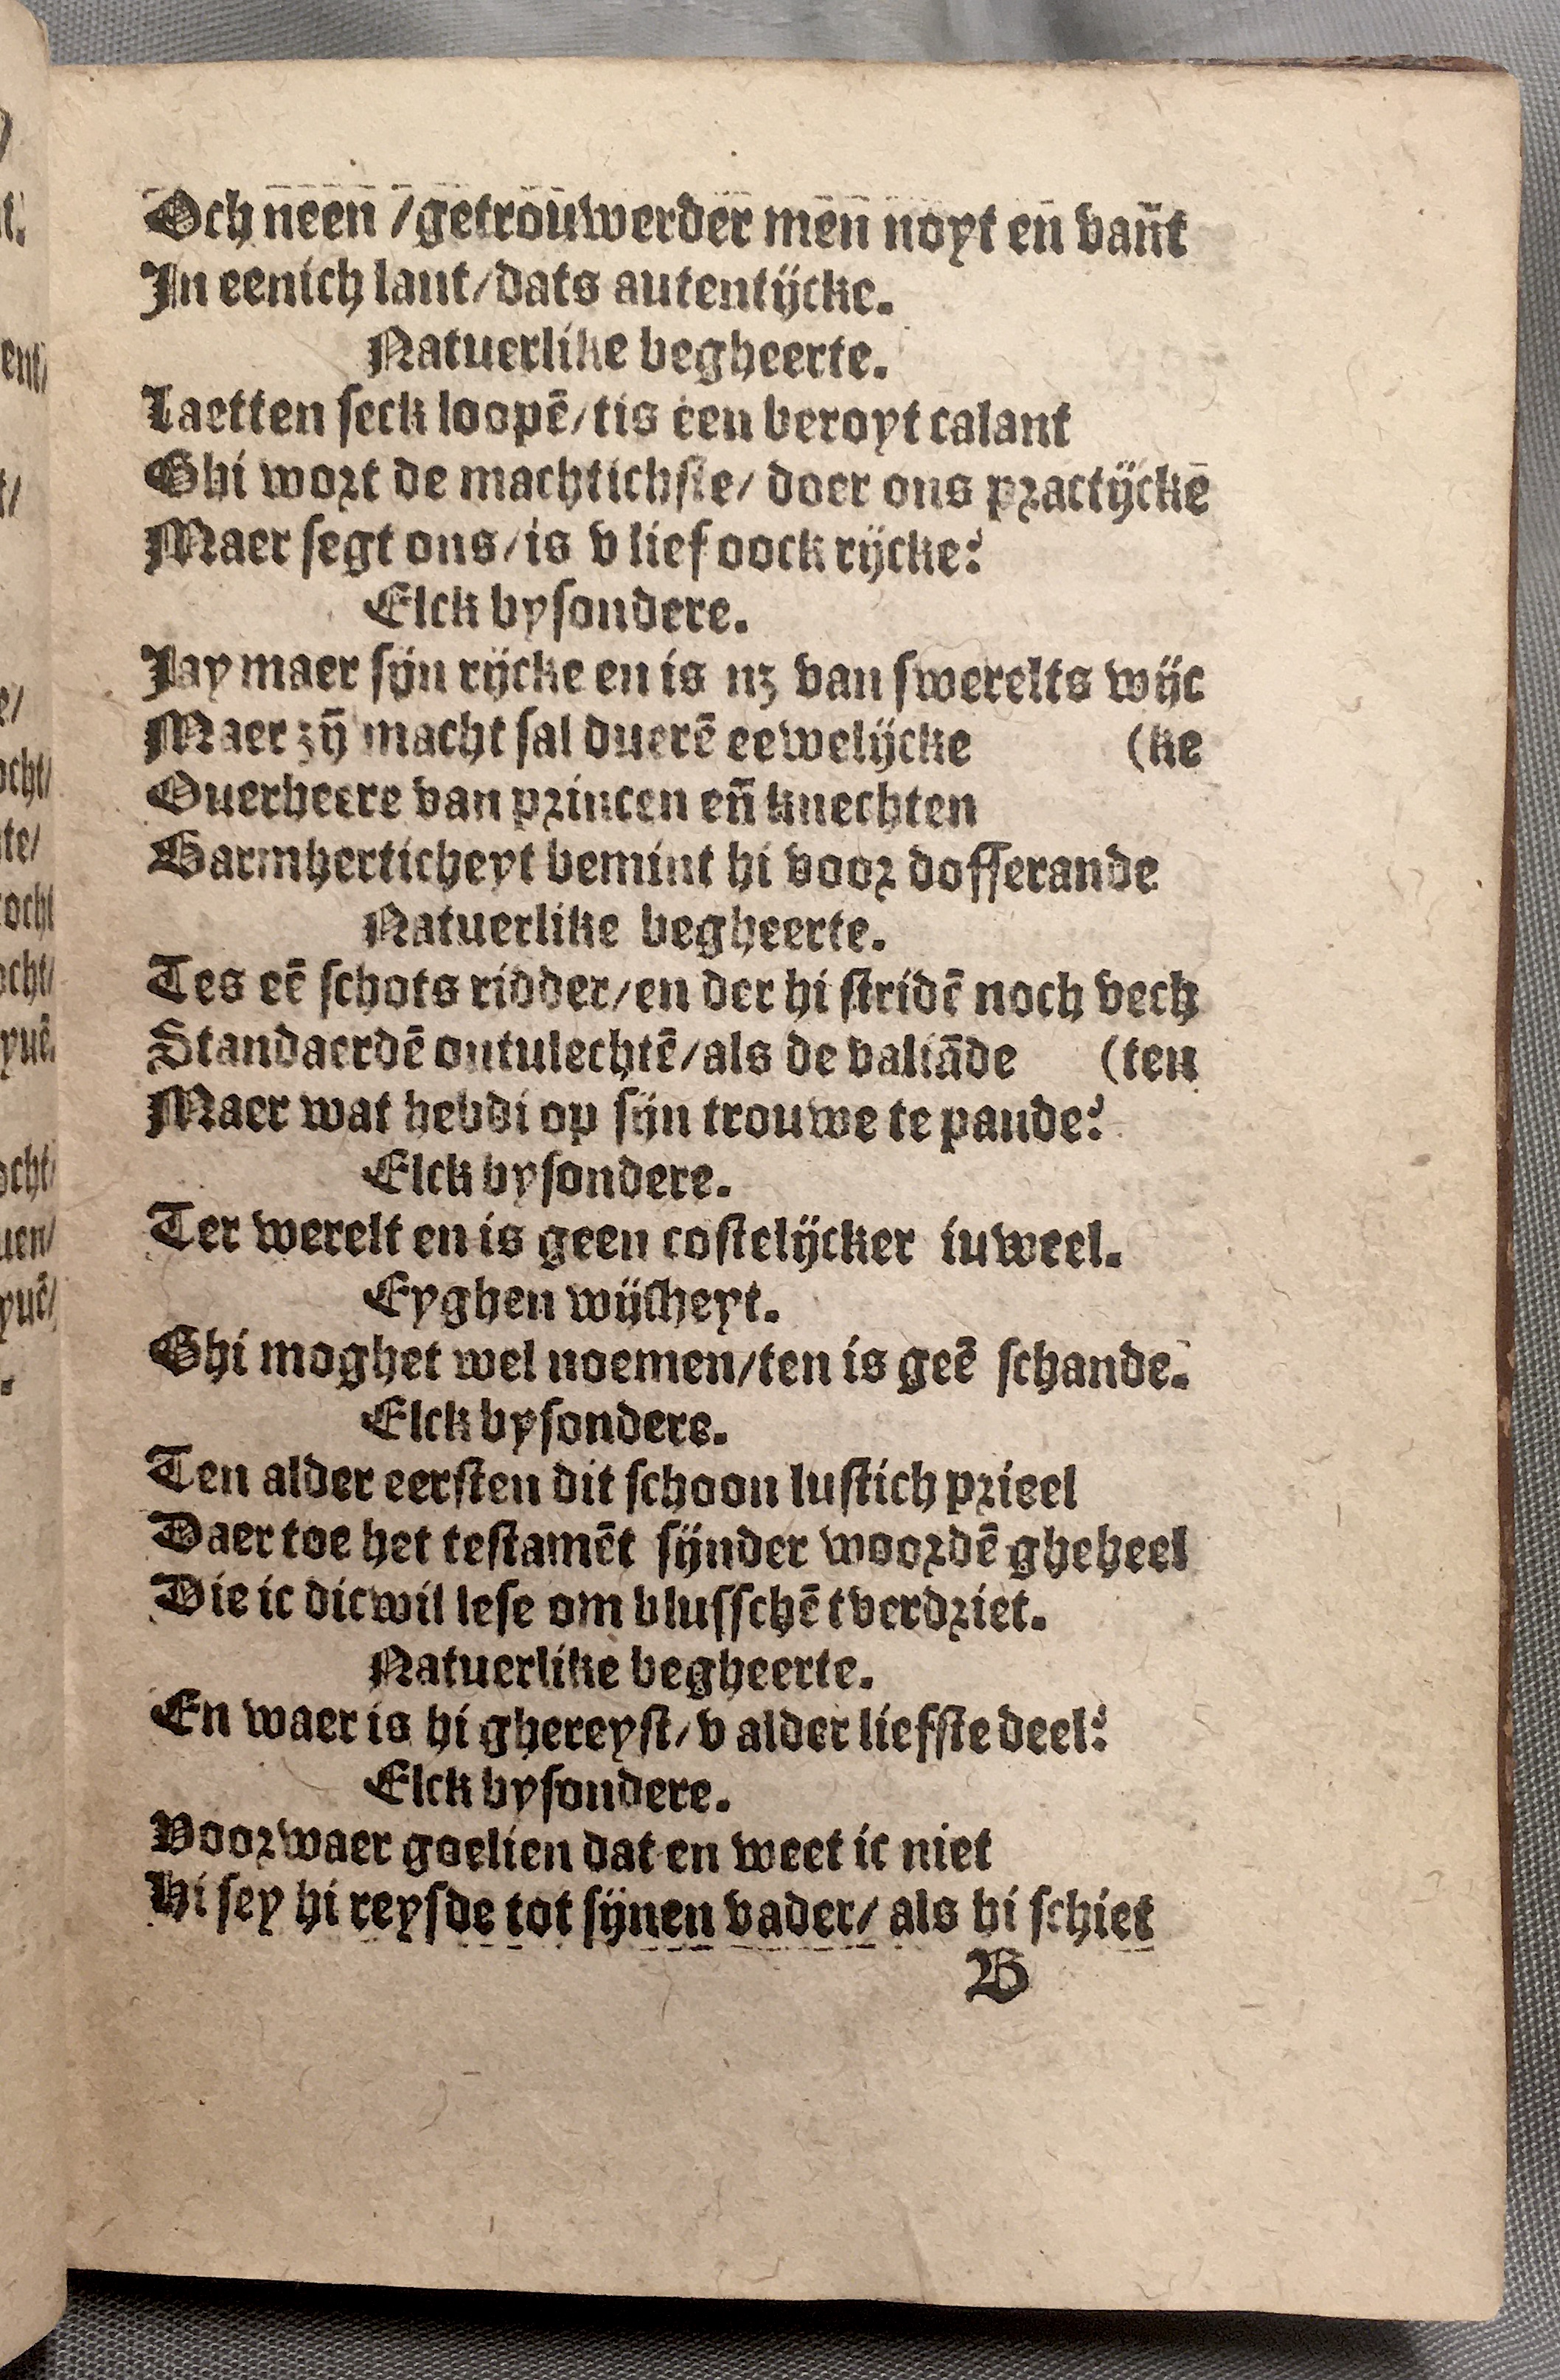 Och neen /getrouwerder men noyt en vañt
In eenich lant/dats autentijcke.
Natuerlike begheerte.
Laetten seck loopē/tis een beroyt calant
Ghi wort de machtichste/ doer ons practijckē
Maer segt ons/is v lief oock rijcke?
Elck bysondere.
Jay maer sijn rijcke en is nz van swerelts wijc
Maer zȳ macht sal duerē eewelijcke (ke
Ouerheere van princen eñ knechten
Barmherticheyt bemint hi voor dofferande
Natuerlike begheerte.
Tes eē schots ridder/en der hi stridē noch vech
Standaerdē ontulechtē/als de valiāde (ten
Maer wat hebdi op sijn trouwe te pande?
Elck bysondere.
Ter werelt en is geen costelijcker iuweel.
Eyghen wijsheyt.
Ghi moghet wel noemen/ten is geē schande.
Elck bysondere.
Ten alder eersten dit schoon lustich prieel
Daer toe het testamēt sijnder woordē gheheel
Die ic dicwil lese om blusschē tverdriet.
Natuerlike begheerte.
En waer is hi ghereyst/v alder liefste deel?
Elck bysondere.
Voorwaer goelien dat en weet ic niet
Hi sey hi reysde tot sijnen vader/ als hi schiet
B